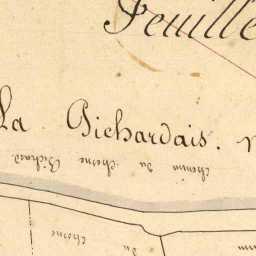 Feuille
La Pichardais.
chemin du chesne Bichard
chesne
du